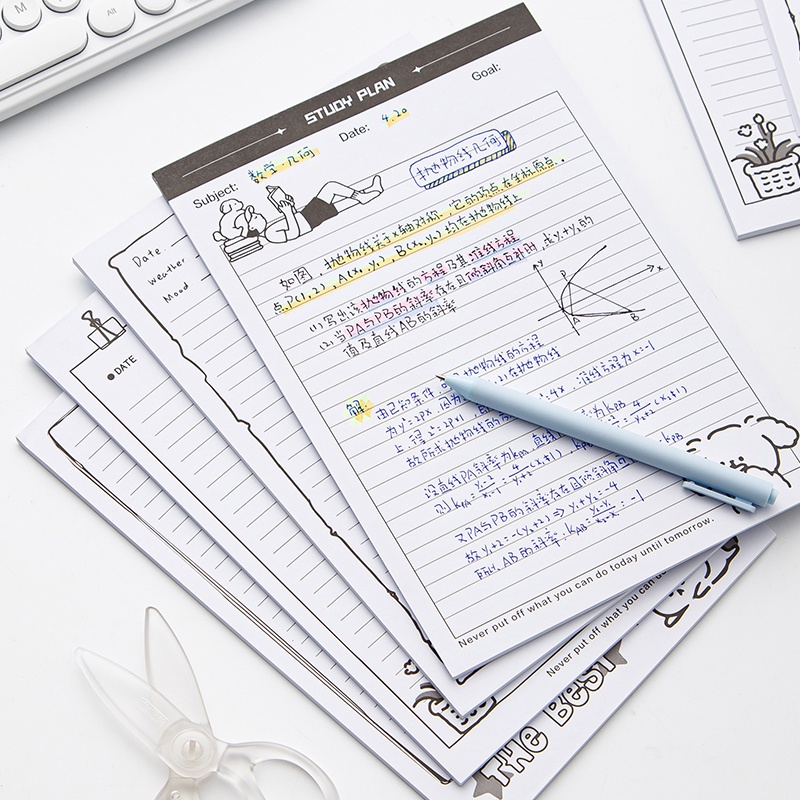 M
Alt
STUDY PLAN
Goal:
Date: 4.20
Subject: 数学·几何
抛物线几何
如图,抛物线关于x轴对称,它的顶点在坐标原点,
点P(1,2), A(x₁,y₁), B(x₂,y₂)均在抛物线上
(1)写出该抛物线的方程及其准线方程
(2)当PA与PB的斜率存在且倾斜角互补时,求y₁+y₂的
值及直线AB的斜率
y
x
P
A
B
解:由已知条件,可 抛物线的方程
为y²=2px,因为 在抛物线
上,得2²=2p×1, 4x,准线方程为x=-1
故所求抛物线的
设直线PA斜率为kPA,直线 为kPB
则kPA=
又PA与PB的斜率存在且倾斜角
故y₁+2=-(y₂+2) ⇒ y₁+y₂=-4
所以,AB的斜率,kAB= =-1
Never put off what you can do today until tomorrow.
Date
weather
Mood
DATE
Never put off what you can do
THE BEST